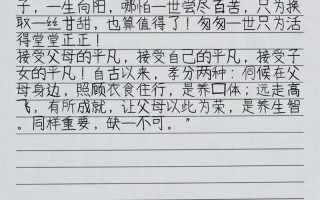 子，一生向阳，哪怕一世尝尽百苦，只为换
取一丝甘甜，也算值得了！匆匆一世只为活
得堂堂正正！
接受父母的平凡，接受自己的平凡，接受子
女的平凡！自古以来，孝分两种：伺候在父
母身边，照顾衣食住行，是养口体；远走高
飞，有所成就，让父母以此为荣，是养生智
。同样重要，缺一不可。”